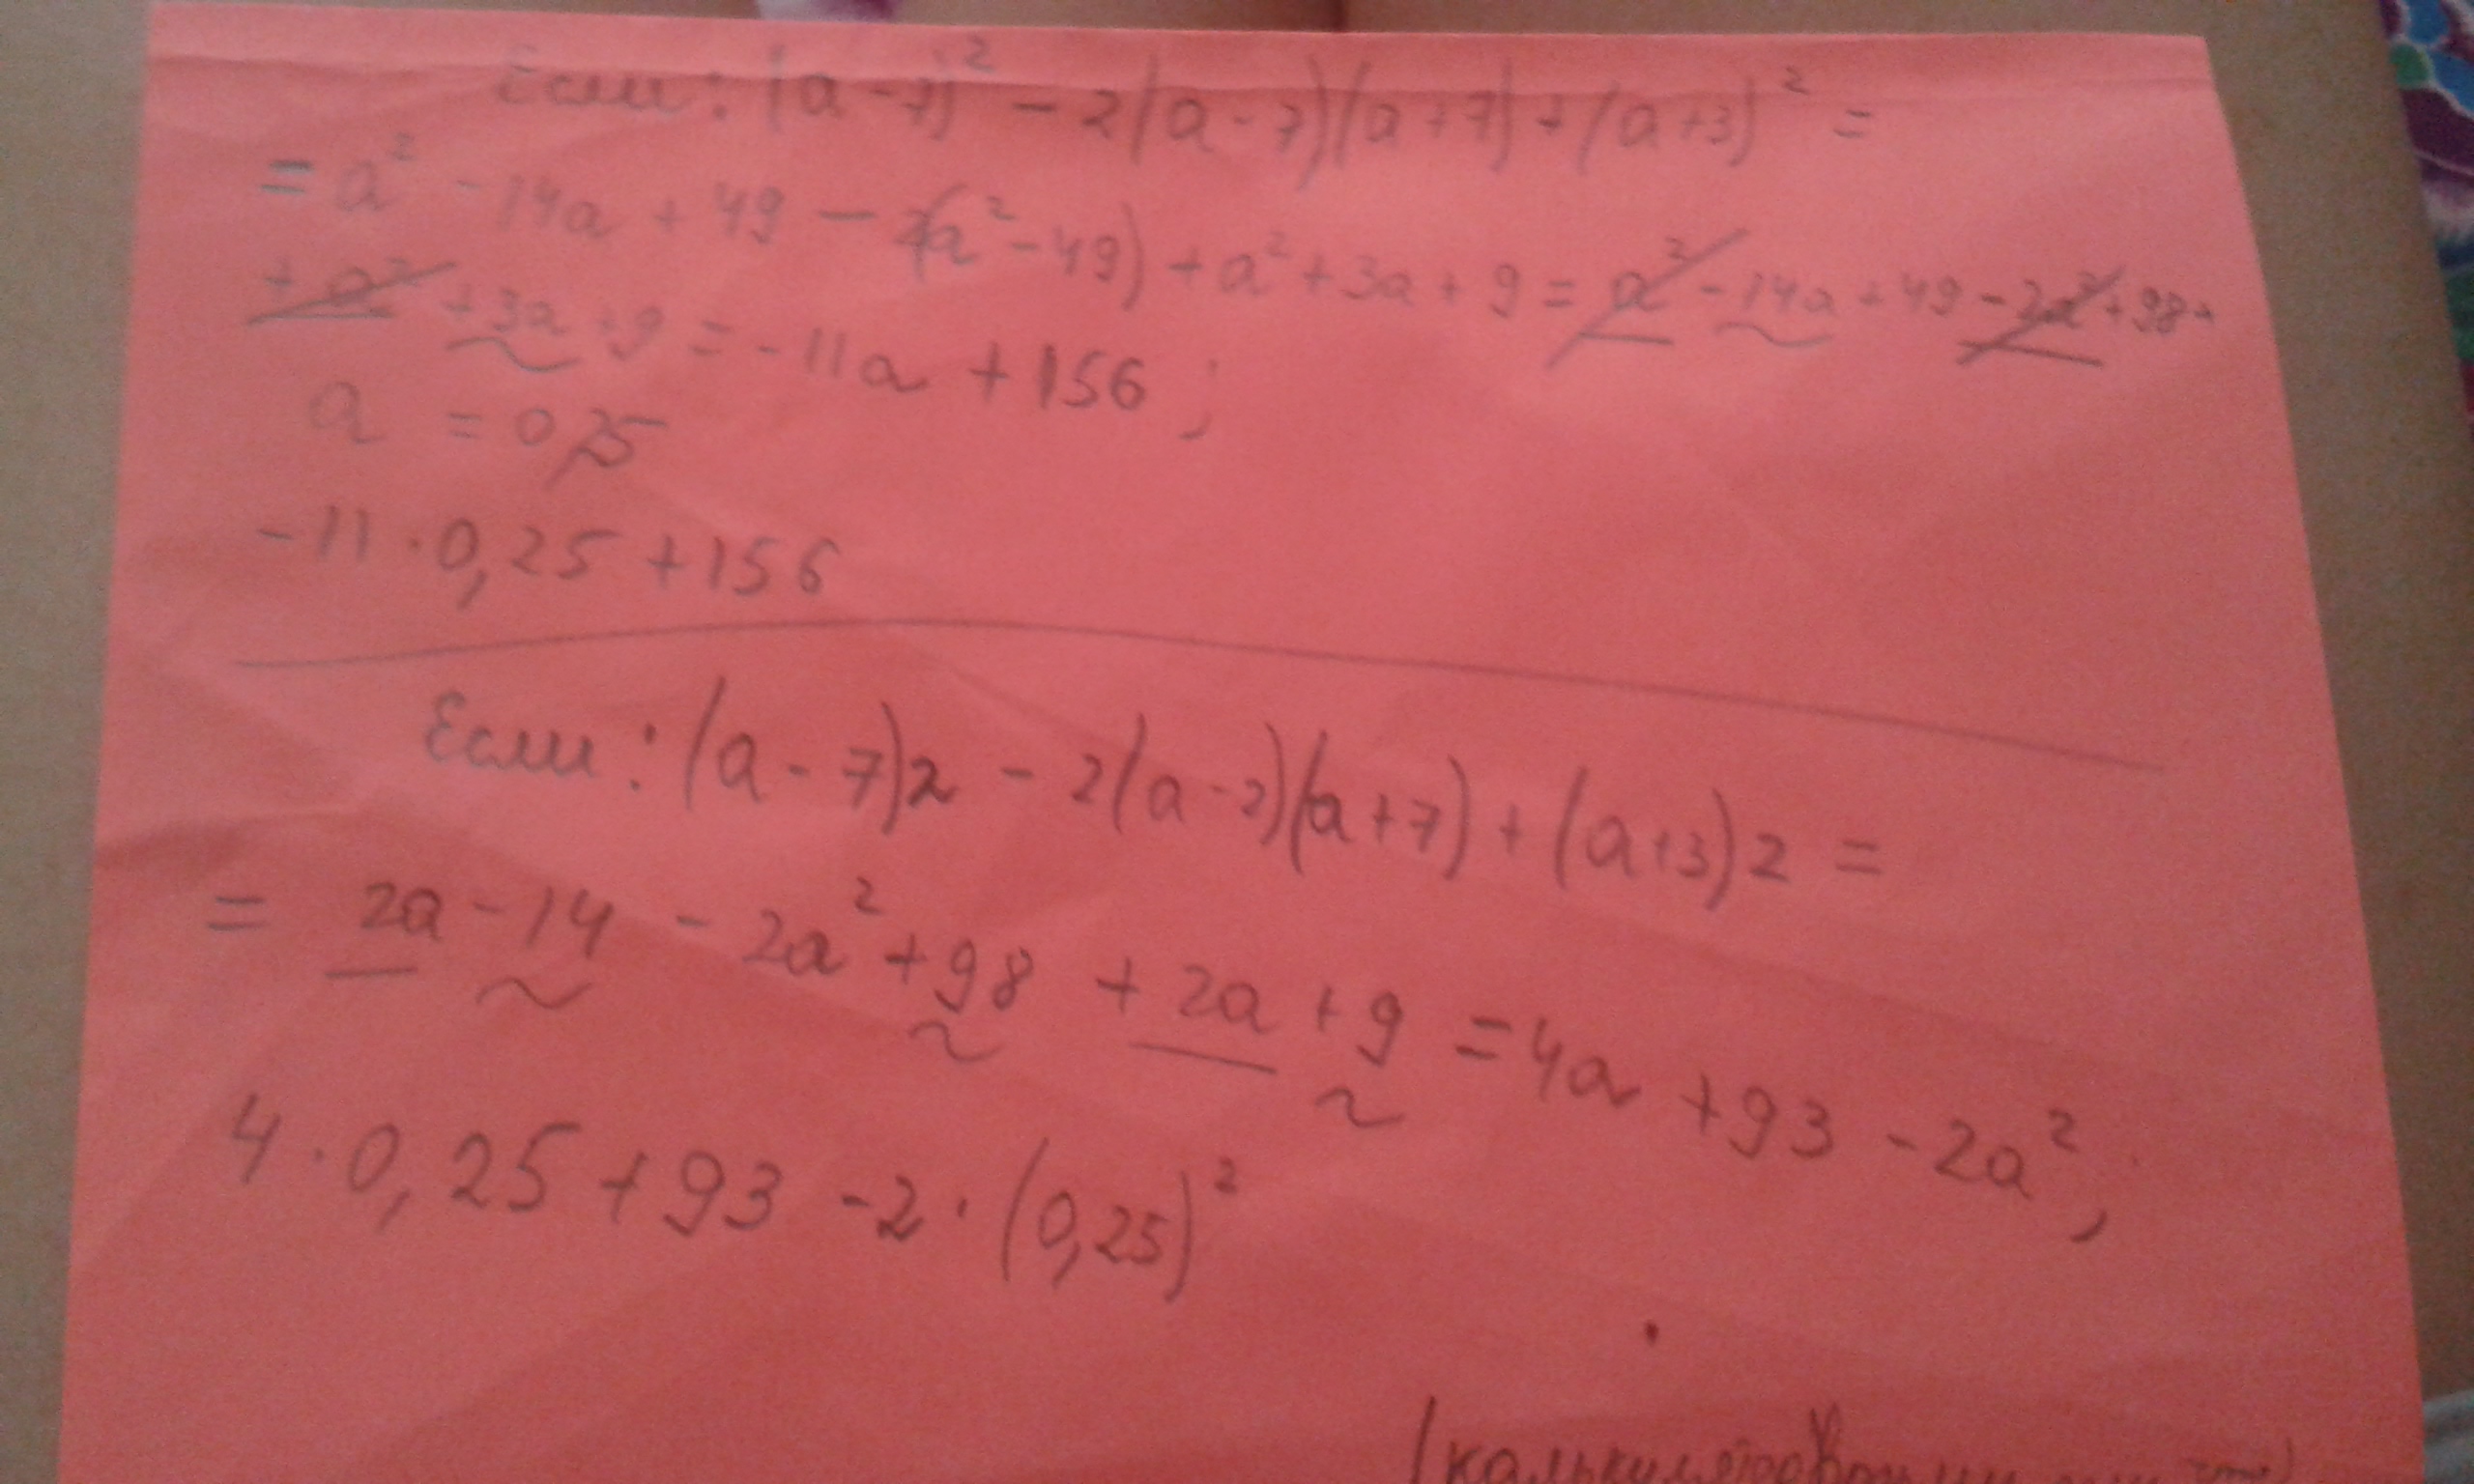 Если: (a-7)² - 2(a-7)(a+7) + (a+3)² =
= a² - 14a + 49 - 2(a² - 49) + a² + 3a + 9 = a² - 14a + 49 - 2a² + 98 +
+ a² + 3a + 9 = -11a + 156 ;
a = 0,25
-11 · 0,25 + 156
Если: (a-7)2 - 2(a-2)(a+7) + (a+3)2 =
= 2a - 14 - 2a² + 98 + 2a + 9 = 4a + 93 - 2a² ,
4 · 0,25 + 93 - 2 · (0,25)²